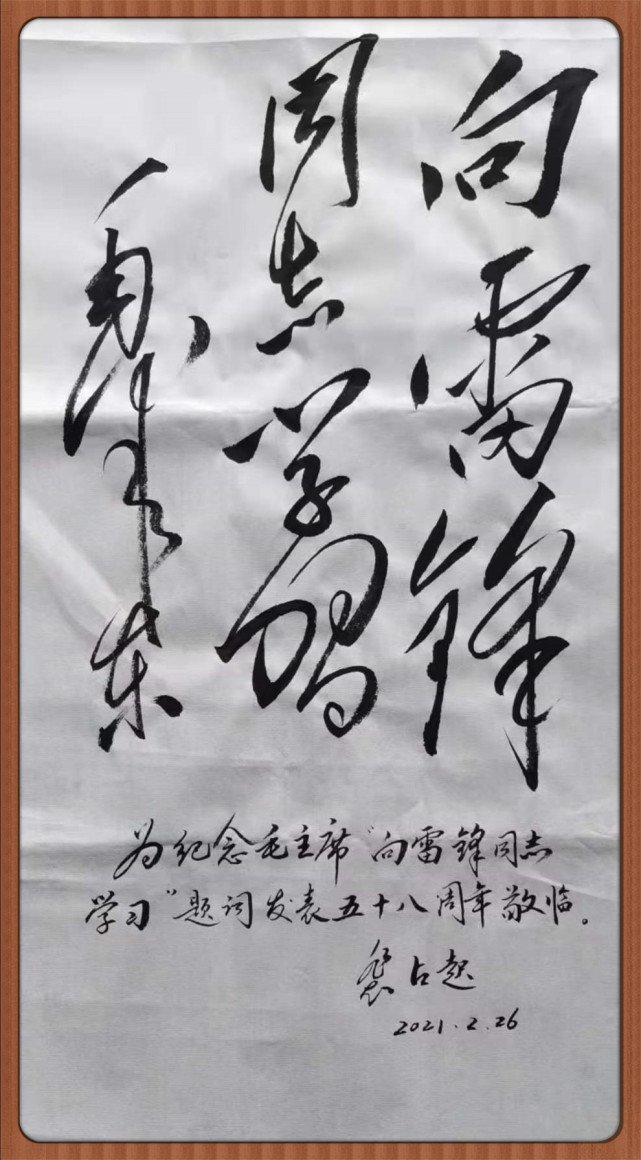 向雷锋
同志学习
毛泽东
为纪念毛主席“向雷锋同志
学习”题词发表五十八周年敬临。
袭占起
2021.2.26